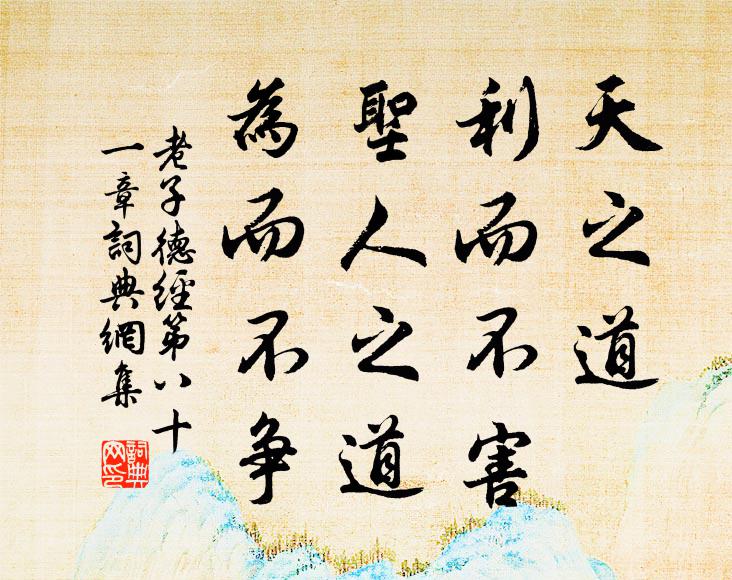 天之道
利而不害
聖人之道
為而不争
老子德經第八十
一章詞典網集
詞典
网印